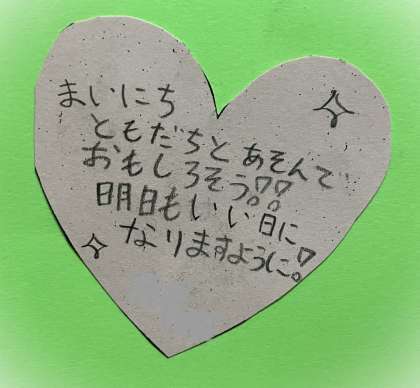 まいにち
ともだちとあそんで
おもしろそう!!
明日もいい日に
なりますように!